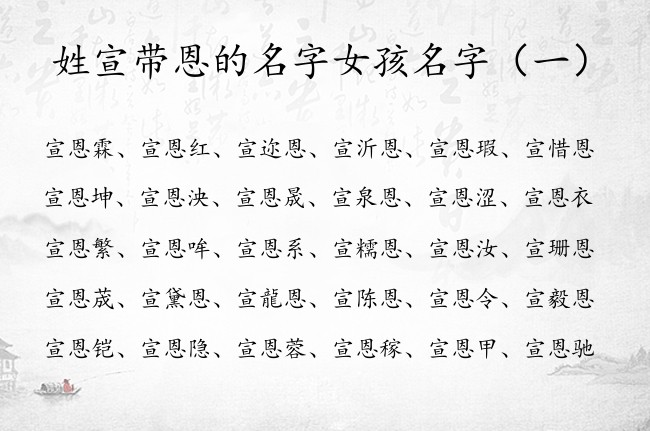 姓宣带恩的名字女孩名字（一）
宣恩霖、宣恩红、宣迩恩、宣沂恩、宣恩瑕、宣惜恩
宣恩坤、宣恩泱、宣恩晟、宣泉恩、宣恩涩、宣恩衣
宣恩繁、宣恩哞、宣恩系、宣糯恩、宣恩汝、宣珊恩
宣恩荿、宣黛恩、宣龍恩、宣陈恩、宣恩令、宣毅恩
宣恩铠、宣恩隐、宣恩蓉、宣恩稼、宣恩甲、宣恩驰